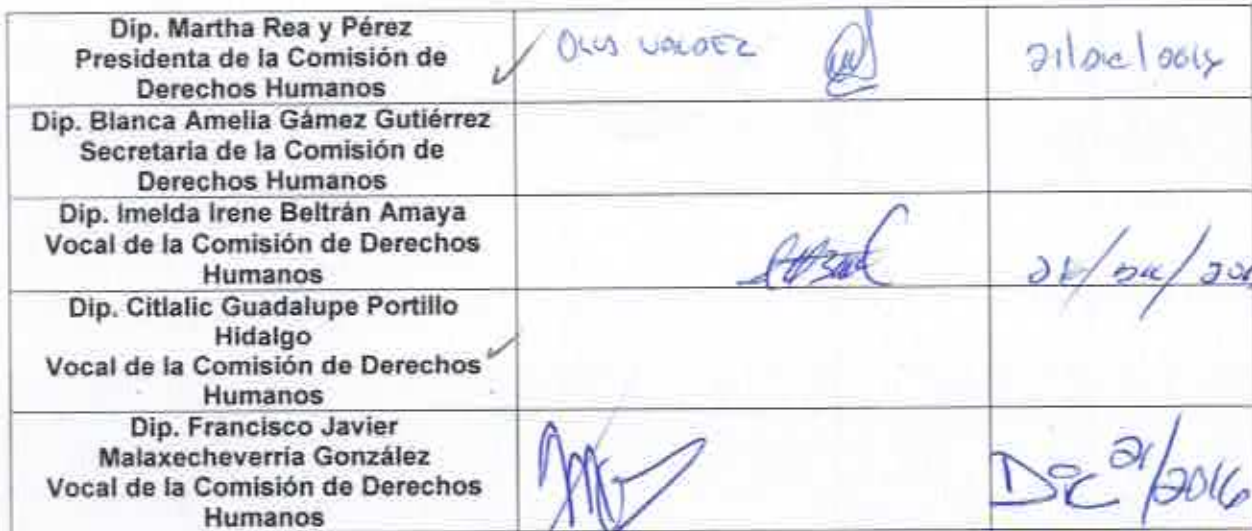 Dip. Martha Rea y Pérez
Presidenta de la Comisión de
Derechos Humanos
VALDEZ
21/Dic/
Dip. Blanca Amelia Gámez Gutiérrez
Secretaria de la Comisión de
Derechos Humanos
Dip. Imelda Irene Beltrán Amaya
Vocal de la Comisión de Derechos
Humanos
Dip. Citlalic Guadalupe Portillo
Hidalgo
Vocal de la Comisión de Derechos
Humanos
Dip. Francisco Javier
Malaxecheverría González
Vocal de la Comisión de Derechos
Humanos
Dic 21/2016